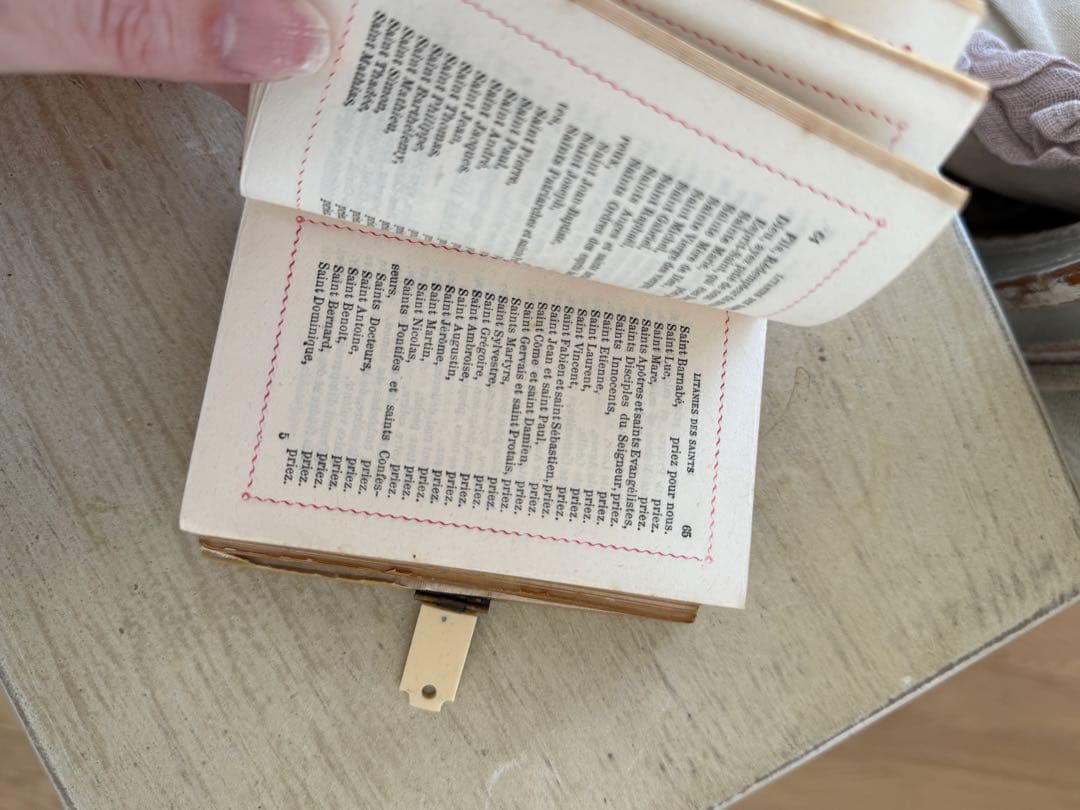 64
Fils Rédempteur
Dieu, ayez pitié de
Esprit-Saint, qui
Sainte Marie,
Sainte
Sainte Vierge des
Saint Michel,
Saint Gabriel,
Saint Raphaël,
Saints Anges et saints
Saints Ordres des
reux,
Saint Jean-Baptiste,
Saint Joseph,
Saints Patriarches et
tes,
Saint Pierre,
Saint Paul,
Saint André,
Saint Jacques,
Saint Jean,
Saint Thomas,
Saint Philippe,
Saint Barthélemy,
Saint Matthieu,
Saint Simon,
Saint Thadée,
Saint Mathias,
LITANIES DES SAINTS 65
Saint Barnabé, priez pour nous.
Saint Luc, priez.
Saint Marc, priez.
Saints Apôtres et saints Evangélistes,
Saints Disciples du Seigneur, priez.
Saints Innocents, priez.
Saint Etienne, priez.
Saint Laurent, priez.
Saint Vincent, priez.
Saint Fabien et saint Sébastien, priez.
Saint Jean et saint Paul, priez.
Saint Côme et saint Damien, priez.
Saint Gervais et saint Protais, priez.
Saints Martyrs, priez.
Saint Sylvestre, priez.
Saint Grégoire, priez.
Saint Ambroise, priez.
Saint Augustin, priez.
Saint Jérôme, priez.
Saint Martin, priez.
Saint Nicolas, priez.
Saints Pontifes et saints Confes-
seurs, priez.
Saints Docteurs, priez.
Saint Antoine, priez.
Saint Benoit, priez.
Saint Bernard, priez.
Saint Dominique, priez.
5